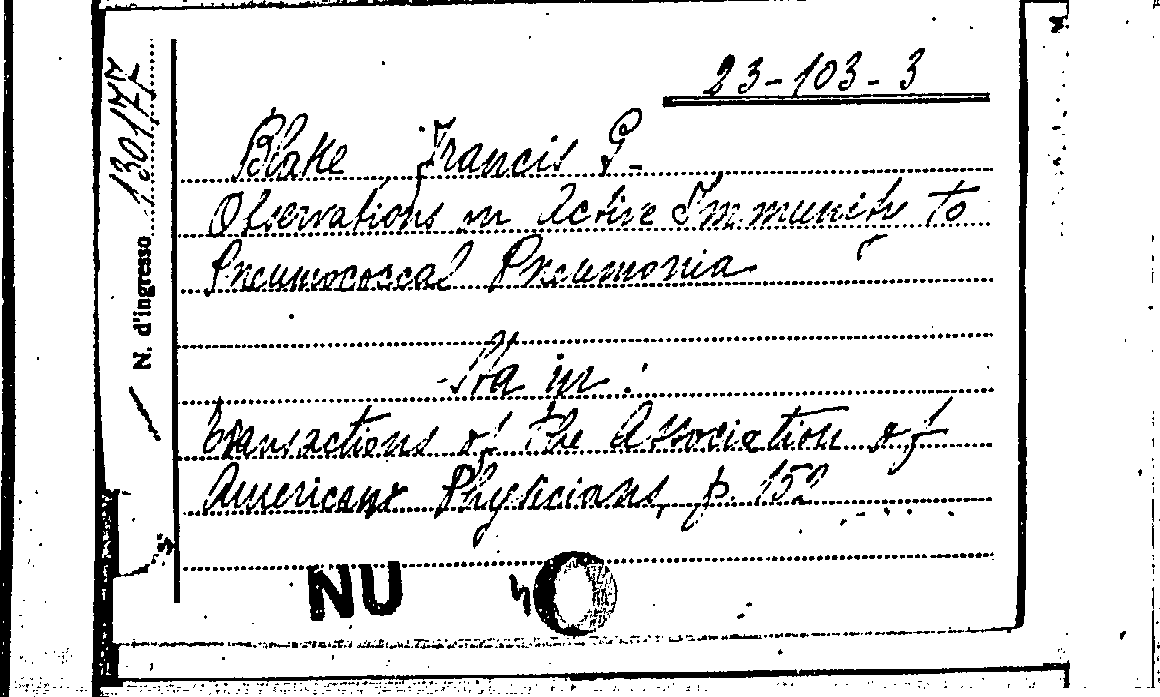 23-103-3
N. d'ingresso 130177
Blake Francis G.
Observations in Active Immunity to
Pneumococcal Pneumonia
Sta in:
Transactions of the Association of
American Physicians, p. 152
NU